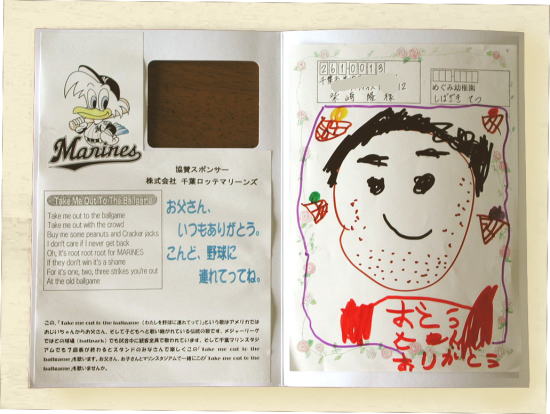 Marines
協賛スポンサー
株式会社 千葉ロッテマリーンズ
Take Me Out To The Ballgame
Take me out to the ballgame
Take me out with the crowd
Buy me some peanuts and Cracker jacks
I don't care if I never get back
Oh, it's root root root for MARINES
If they don't win it's a shame
For it's one, two, three strikes you're out
At the old ballgame
お父さん、
いつもありがとう。
こんど、野球に
連れてってね。
この、「Take me out to the ballgame(わたしを野球に連れてって)」という歌はアメリカでは
おじいちゃんからお父さん、そして子どもへと歌い継がれている伝統の歌です。メジャーリーグ
ではどの球場(ballpark)でも試合中に観客全員で歌われています。そして千葉マリンスタジ
アムでも7回表が終わるとスタンドのみなさんで楽しくこの「Take me out to the
ballgame」を歌います。お父さん、お子さんとマリンスタジアムで一緒にこの「Take me out to the
ballgame」を歌いませんか。
2610013
12
様
めぐみ幼稚園
おとう
と
ありがとう